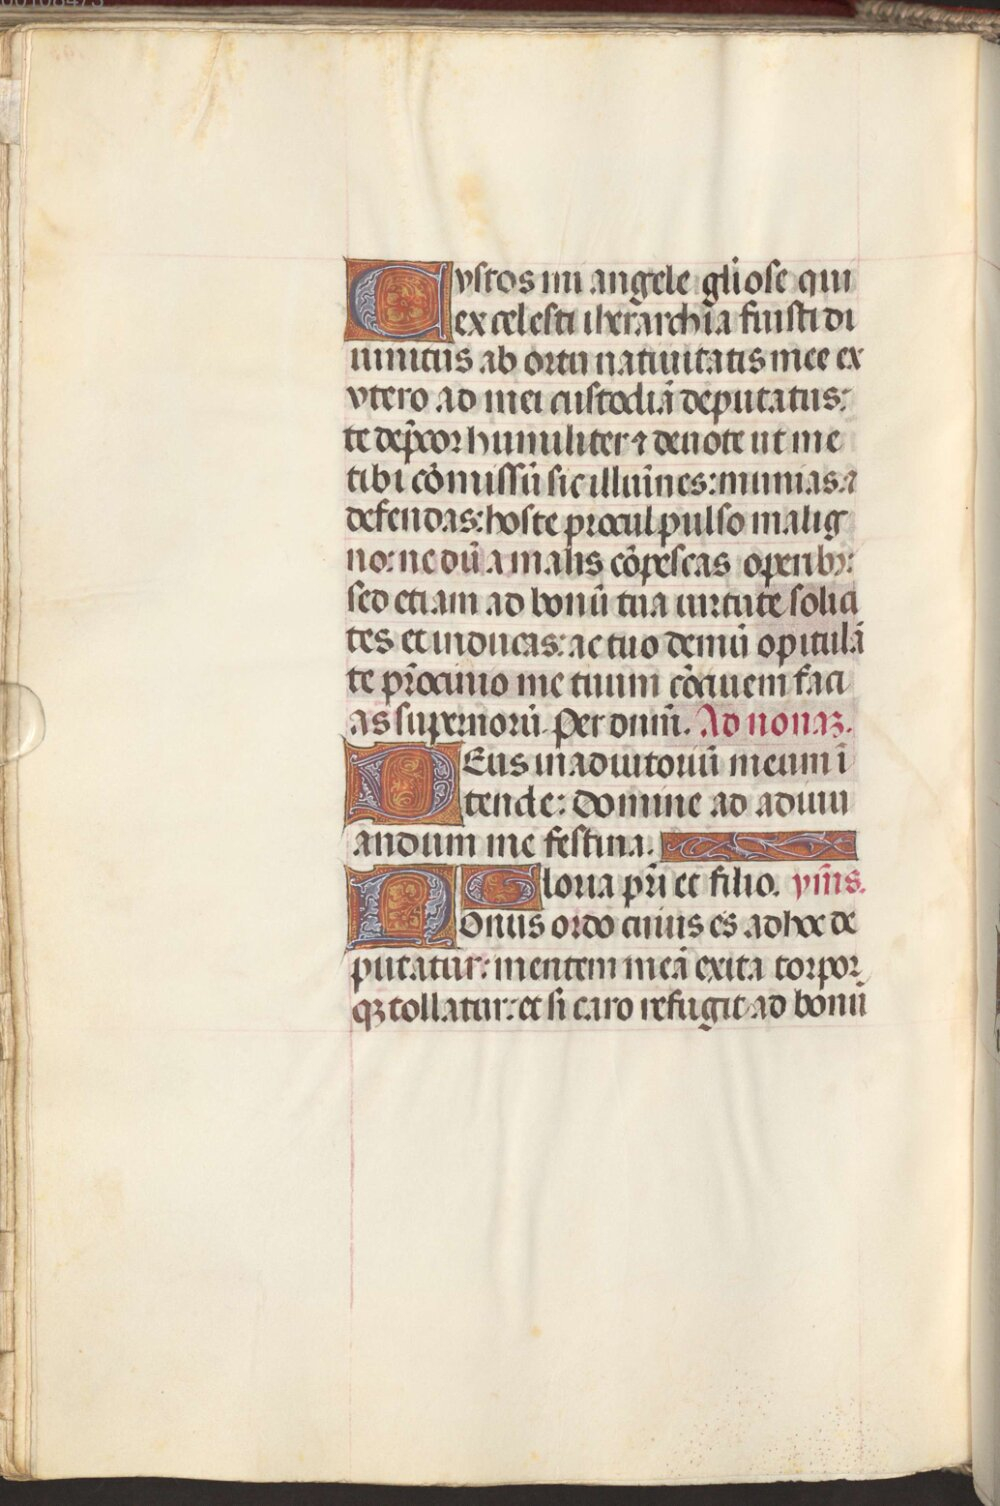 Cystos mi angele gl̃iose qui
ex celesti iherarchia fuisti di
uinitus ab ortu natiuitatis mee ex
vtero ad mei custodiã deputatus:
te dep̃cor humiliter ⁊ deuote ut me
tibi cõmissũ sic illuĩnes: munias: ⁊
defendas: hoste procul pulso malig
no: ne dũ a malis cõpescas operibꝫ:
sed etiam ad bonũ tua uirtute solici
tes et inducas: ac tuo demũ opitulã
te pr̃ocinio me tuum cõciuem faci
as supernorũ. Per dnm̃. Ad nonaꝫ.
DEus in adiutoriũ meum ĩ
tende: Domine ad adiuu
andum me festina.
Gloria pr̃i et filio. ym̃s.
NOnus ordo cuius es ad hoc de
putatur: mentem meã exita torpor
qꝫ tollatur: et si caro refugit ad bonũ